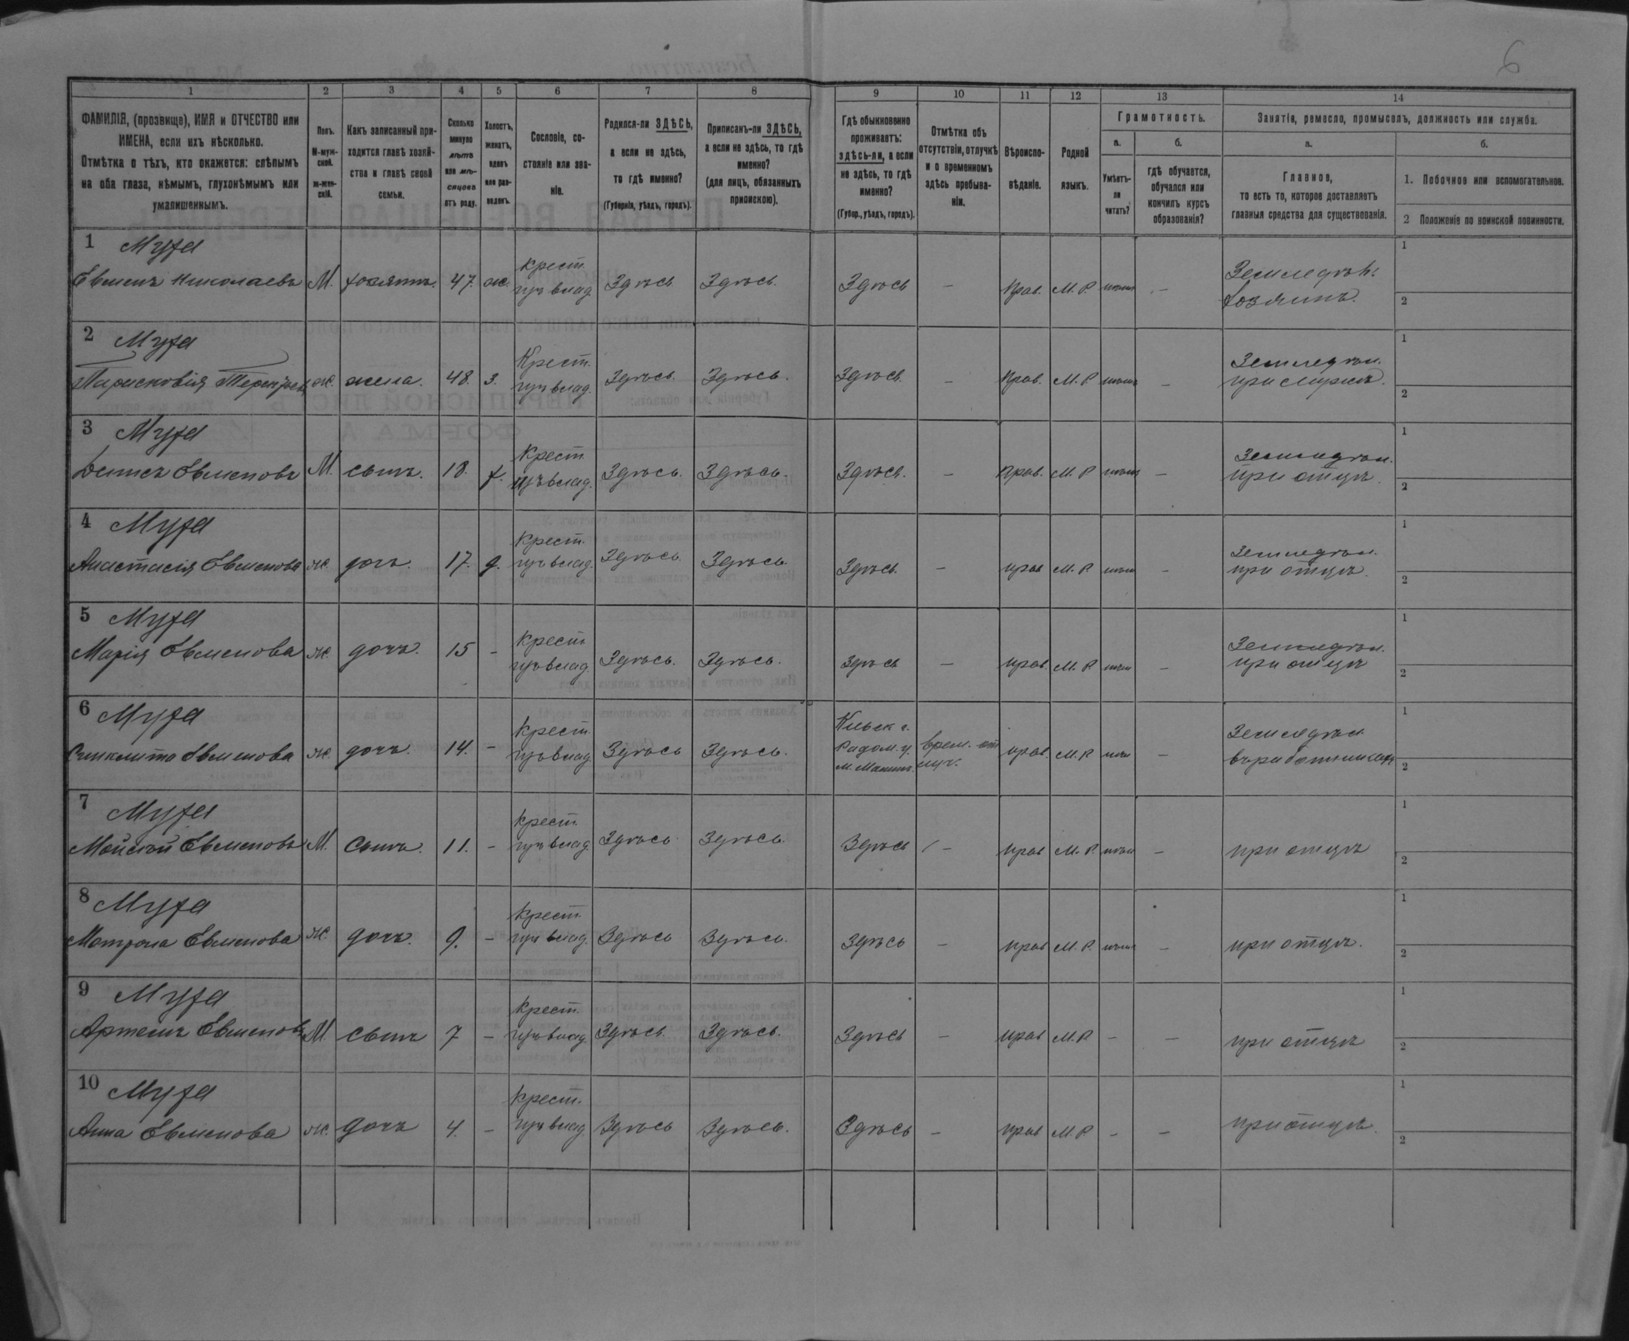 6
1 2 3 4 5 6 7 8 9 10 11 12 13 14
ФАМИЛІЯ, (прозвище), ИМЯ и ОТЧЕСТВО или
ИМЕНА, если ихъ нѣсколько.
Отмѣтка о тѣхъ, кто окажется: слѣпымъ
на оба глаза, нѣмымъ, глухонѣмымъ или
умалишеннымъ.
Полъ.
М-муж-
ской.
ж-жен-
скій.
Какъ записанный при-
ходится главѣ хозяй-
ства и главѣ своей
семьи.
Сколько
минуло
лѣтъ
или мѣ-
сяцевъ
отъ роду.
Холостъ,
женатъ,
вдовъ
или раз-
веденъ.
Сословіе, со-
стояніе или зва-
ніе.
Родился-ли ЗДѢСЬ,
а если не здѣсь,
то гдѣ именно?
(Губернія, уѣздъ, городъ).
Приписанъ-ли ЗДѢСЬ,
а если не здѣсь, то гдѣ
именно?
(для лицъ, обязанныхъ
припискою).
Гдѣ обыкновенно
проживаетъ:
здѣсь-ли, а если
не здѣсь, то гдѣ
именно?
(Губер., уѣздъ, городъ).
Отмѣтка объ
отсутствіи, отлучкѣ
и о временномъ
здѣсь пребыва-
ніи.
Вѣроиспо-
вѣданіе.
Родной
языкъ.
Грамотность.
а.
Умѣетъ-
ли
читать?
б.
гдѣ обучается,
обучался или
кончилъ курсъ
образованія?
Занятіе, ремесло, промыселъ, должность или служба.
а.
Главное,
то есть то, которое доставляетъ
главныя средства для существованія.
б.
1. Побочное или вспомогательное.
2 Положеніе по воинской повинности.
1 Муха
Евменъ Николаевъ М. хозяинъ. 47. ж. Крест. Здѣсь Здѣсь. Здѣсь – Прав. М.Р. – Земледѣл.
хозяинъ.
1
2
2 Муха
ж. жена. 48. з. Крест. Здѣсь. Здѣсь. Здѣсь. – Прав. М.Р – Земледѣл.
при мужѣ.
1
2
3 Муха
Денисъ Евменовъ М. сынъ. 18. х. Крест. Здѣсь. Здѣсь. Здѣсь. – Прав. М.Р – Земледѣл.
при отцѣ.
1
2
4 Муха
Анастасія Евменова ж. дочь. 17. д. Крест. Здѣсь Здѣсь. Здѣсь. – прав М.Р – Земледѣл.
при отцѣ.
1
2
5 Муха
Марія Евменова ж. дочь. 15 – Крест. Здѣсь. Здѣсь. Здѣсь – прав. М.Р – Земледѣл.
при отцѣ
1
2
6 Муха
Евменова ж. дочь. 14. – Крест. Здѣсь Здѣсь. Кіевск. г.
Радом. у. прав. М.Р Земледѣл.
1
2
7 Муха
Мойсей Евменовъ М. Сынъ. 11. – Крест. Здѣсь Здѣсь. Здѣсь – прав М.Р. – при отцѣ
1
2
8 Муха
Матрона Евменова ж. дочь. 9. – Крест. Здѣсь Здѣсь. Здѣсь – прав М.Р – при отцѣ.
1
2
9 Муха
Артемъ Евменовъ М. сынъ 7 – Крест. Здѣсь. Здѣсь. Здѣсь – прав М.Р – – при отцѣ
1
2
10 Муха
Анна Евменова ж. дочь 4. – Крест. Здѣсь Здѣсь. Здѣсь – прав М.Р – – при отцѣ.
1
2